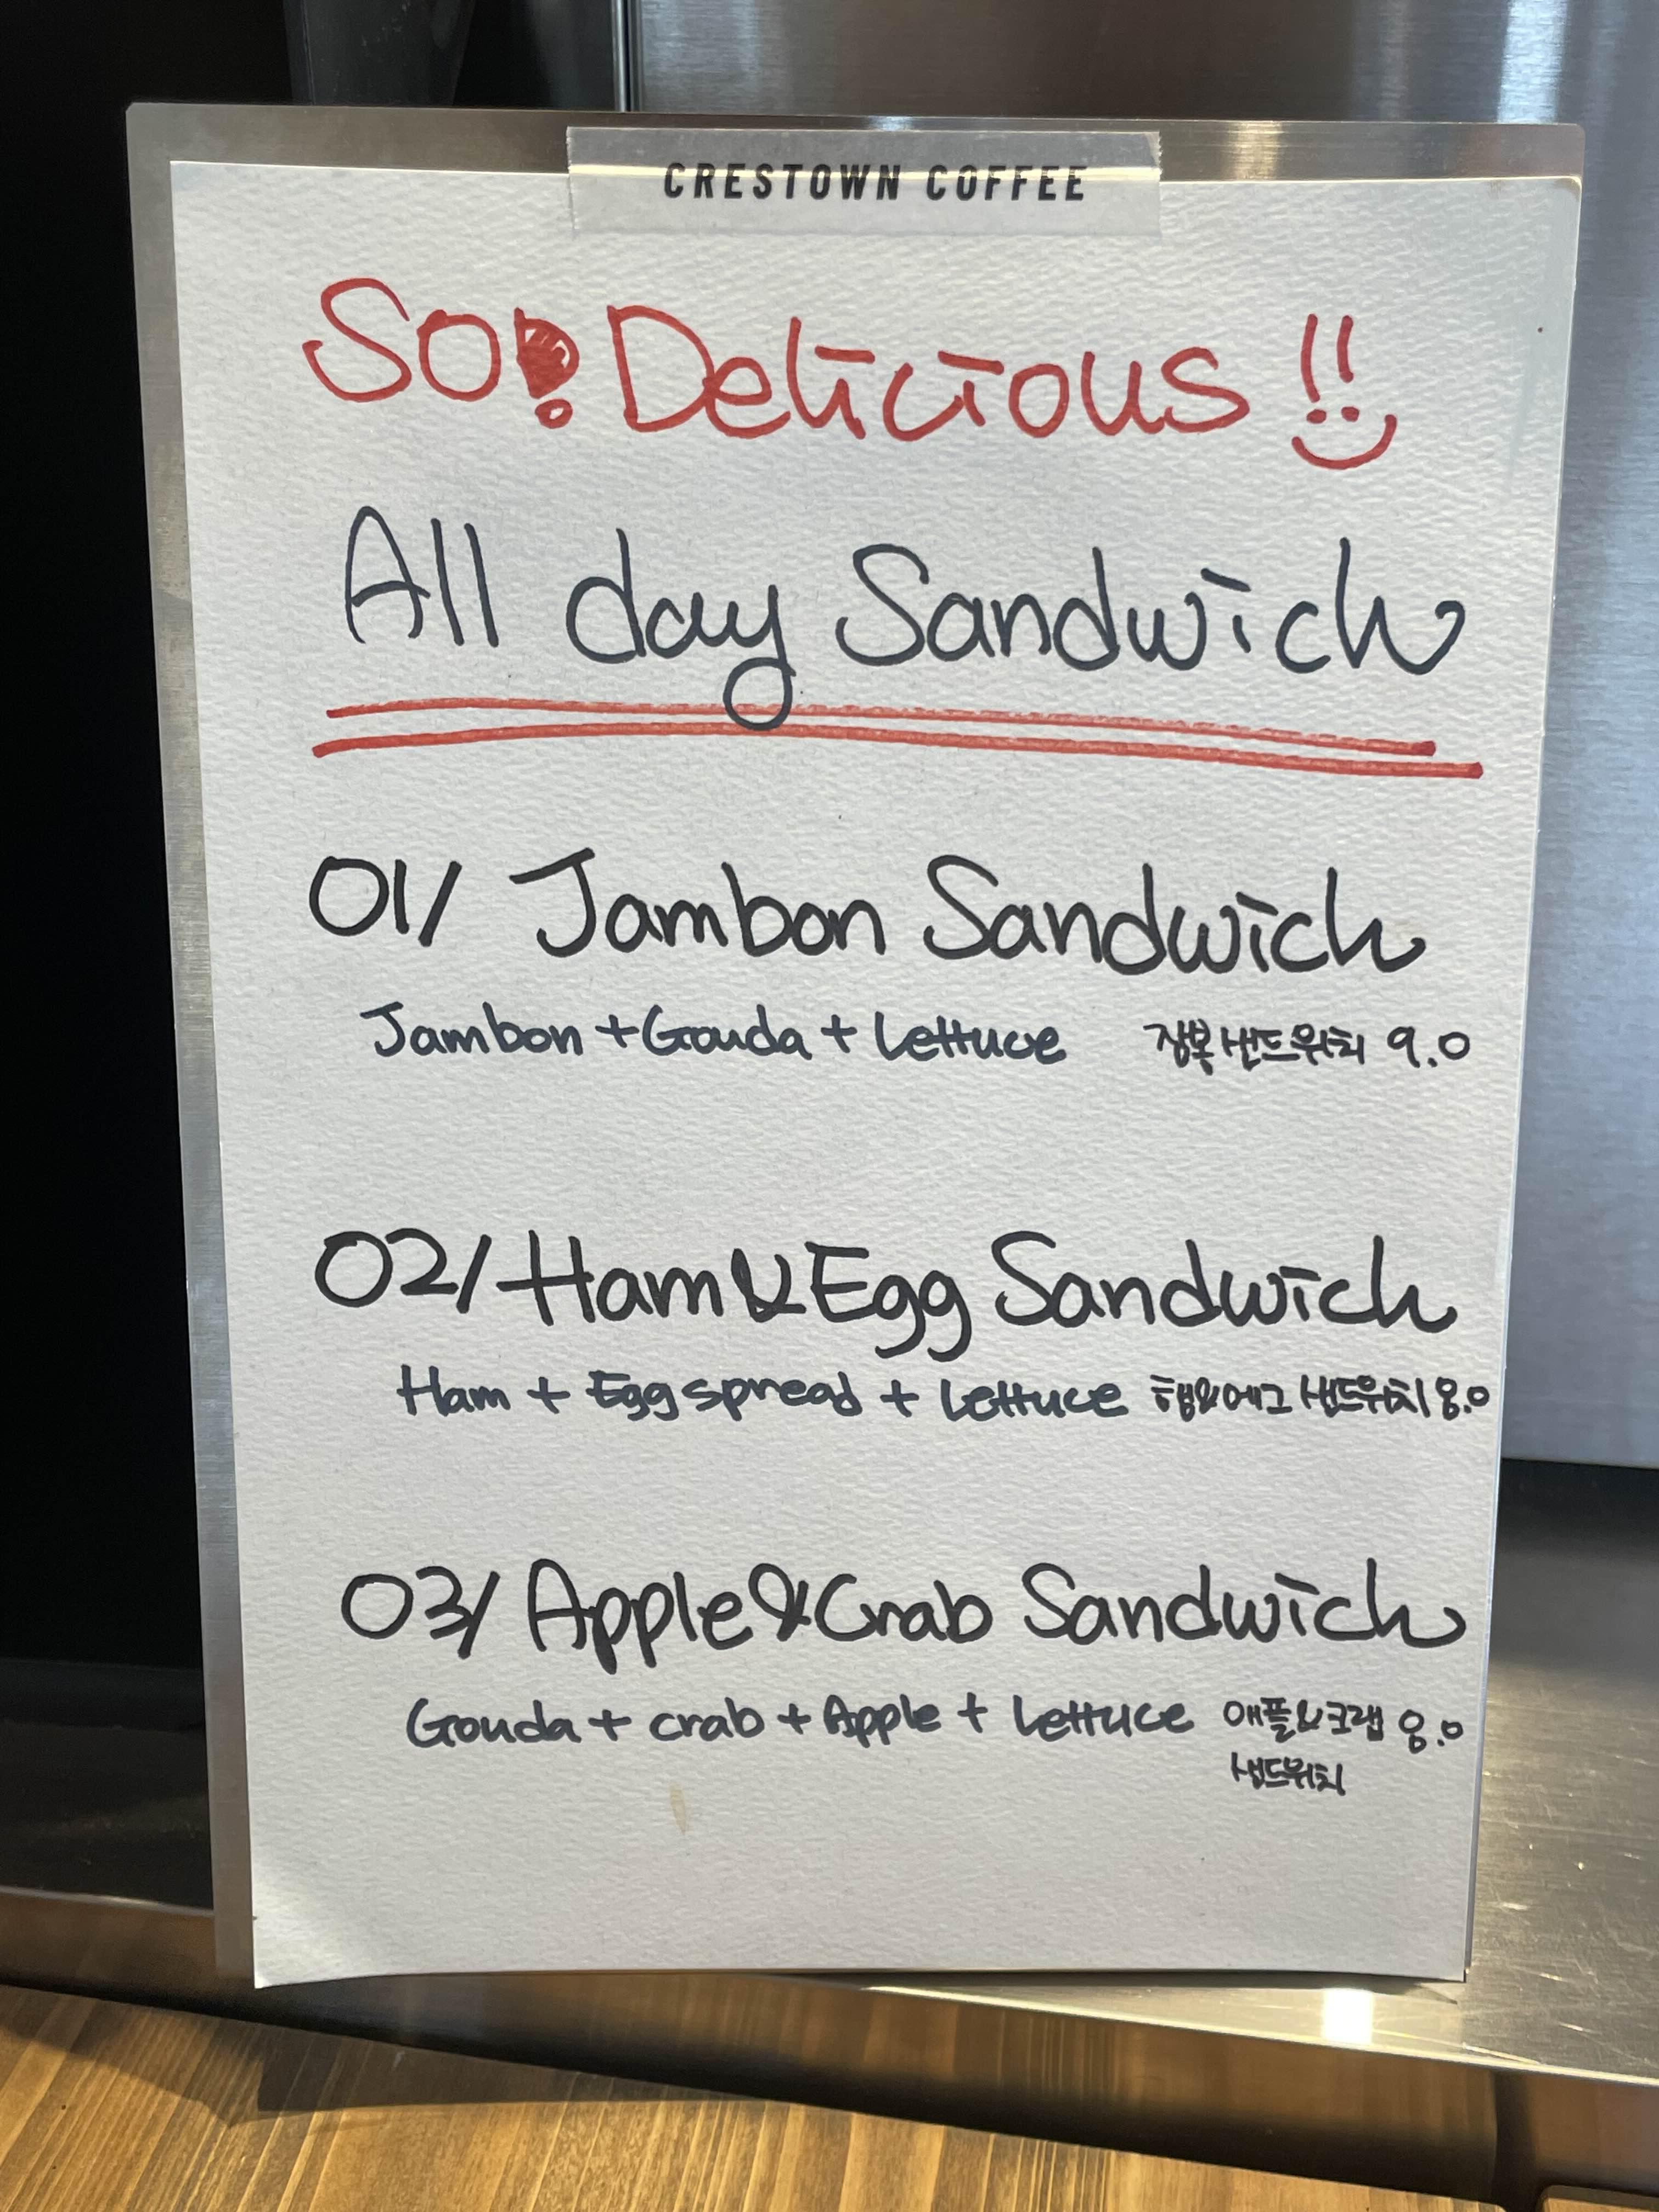 CRESTOWN COFFEE
SO! Delicious!!
All day Sandwich
01/ Jambon Sandwich
Jambon + Gouda + Lettuce 잠봉샌드위치 9.0
02/ Ham & Egg Sandwich
Ham + Egg spread + Lettuce 햄&에그 샌드위치 8.0
03/ Apple & Crab Sandwich
Gouda + crab + Apple + Lettuce 애플&크랩 8.0
샌드위치